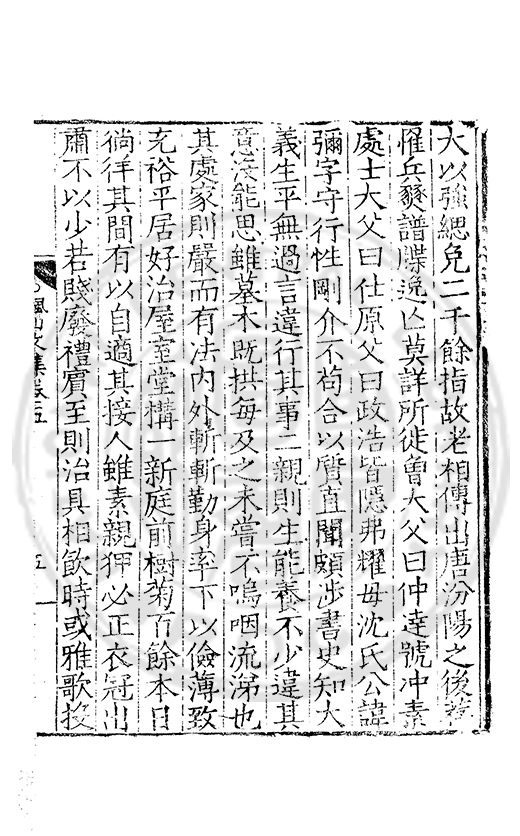 大以強緦免二千餘指故老相傳出唐汾陽之後荐
罹兵燹譜牒逸亡莫詳所徙曾大父曰仲達號冲素
處士大父曰仕原父曰政浩皆隱弗耀母沈氏公諱
彌字守行性剛介不苟合以質直聞頗涉書史知大
義生平無過言違行其事二親則生能養不少違其
意沒能思雖墓木既拱每及之未嘗不嗚咽流涕也
其處家則嚴而有法内外斬斬勤身率下以儉薄致
充裕平居好治屋室堂搆一新庭前樹菊百餘本日
徜徉其間有以自適其接人雖素親狎必正衣冠出
肅不以少若賤廢禮賓至則治具相飲時或雅歌投
楓山文集卷五
五